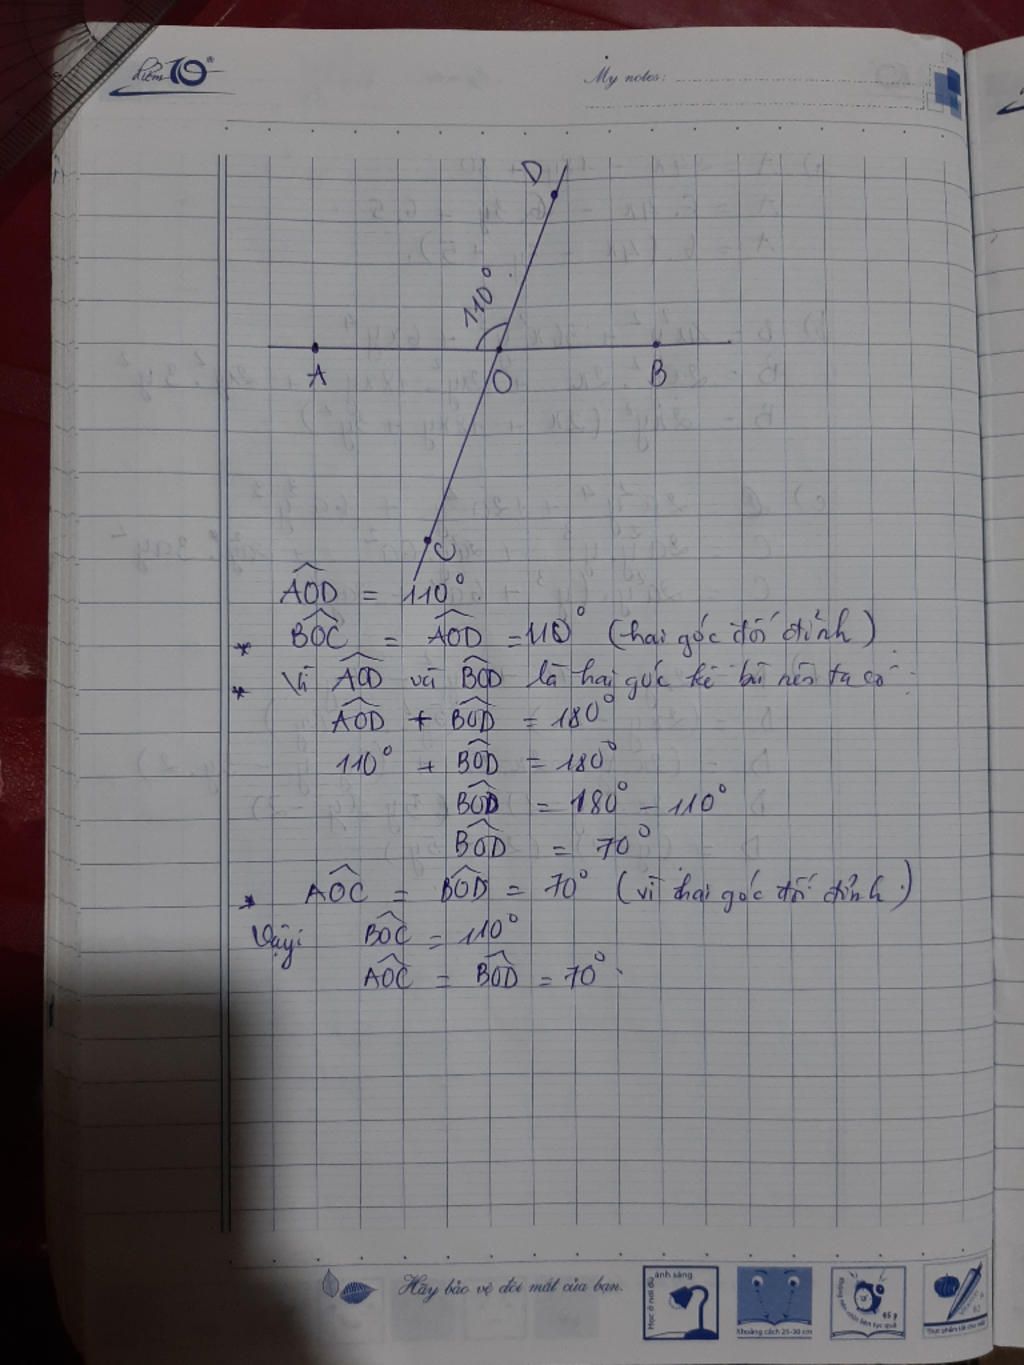 Điểm 10
My notes:
D
110°
A
O
B
C
AOD = 110°
* BOC = AOD = 110° (hai góc đối đỉnh)
* Vì AOD và BOD là hai góc kề bù nên ta có:
AOD + BOD = 180°
110° + BOD = 180°
BOD = 180° - 110°
BOD = 70°
* AOC = BOD = 70° (vì hai góc đối đỉnh.)
Vậy: BOC = 110°
AOC = BOD = 70°.
Hãy bảo vệ đôi mắt của bạn.
Học ở nơi đủ
ánh sáng
Khoảng cách 25-30 cm
45 p